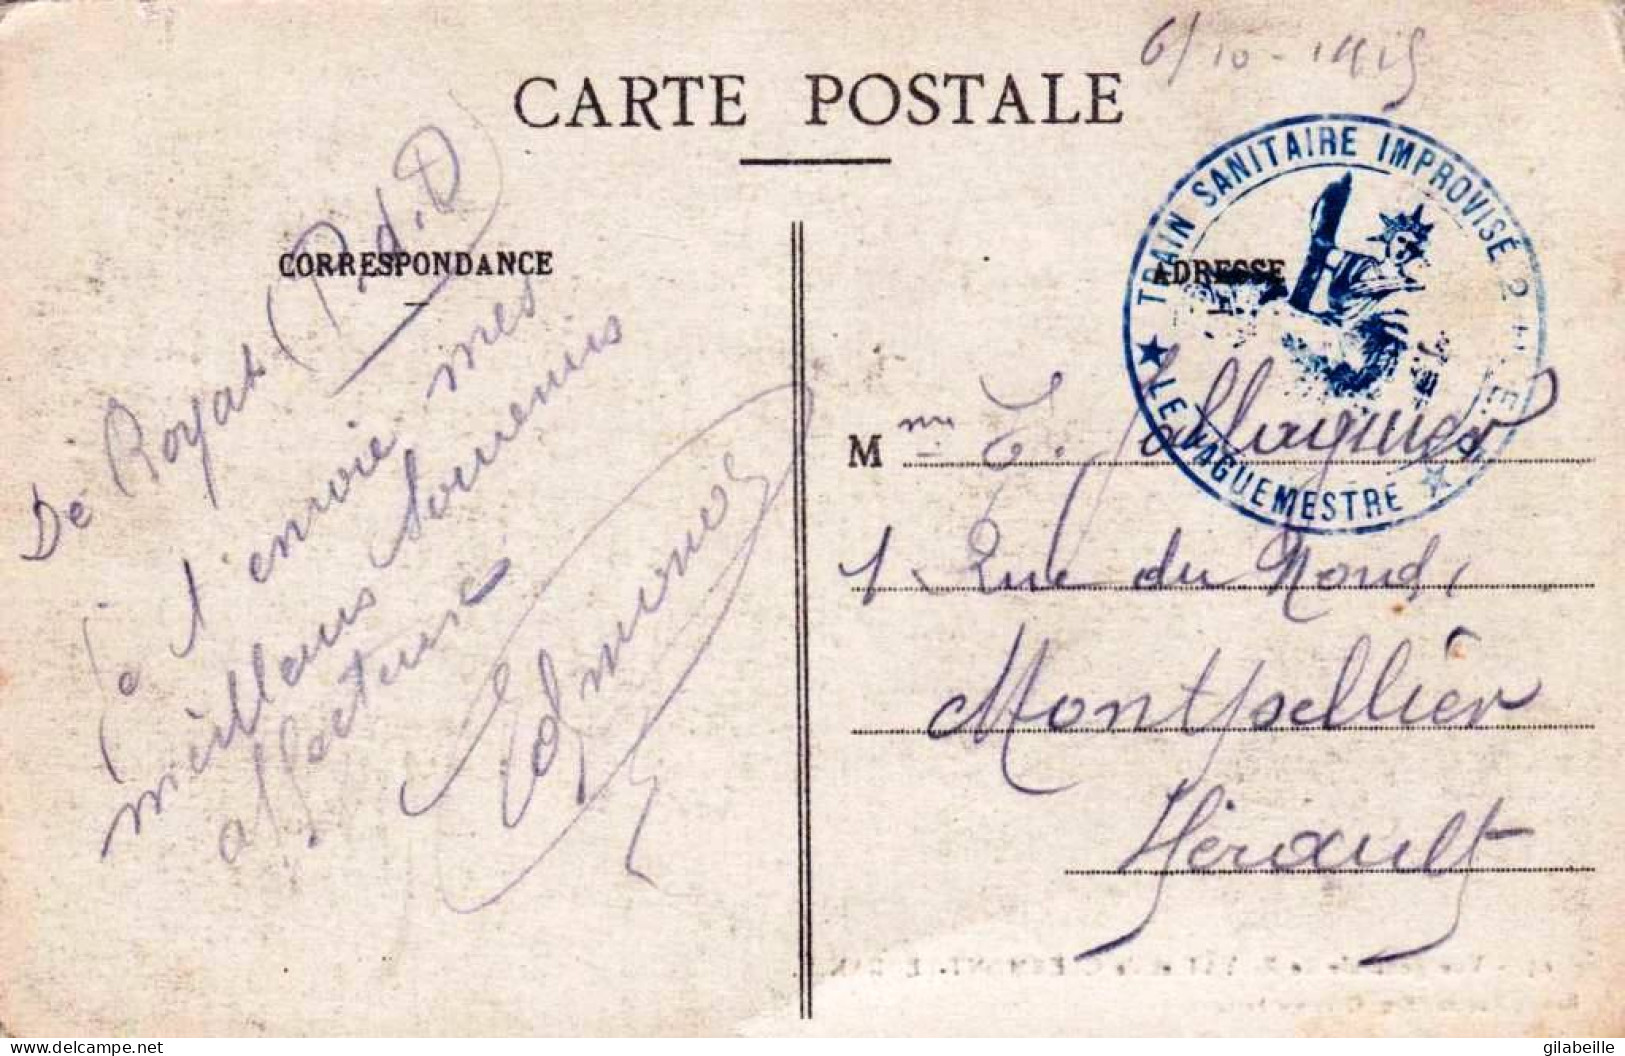 6/10-1915
CARTE POSTALE
TRAIN SANITAIRE IMPROVISÉ 2
★ LE VAGUEMESTRE ★
CORRESPONDANCE
De Royat (P.d.D)
Je t'envoie mes
meilleurs souvenirs
affectueux
Edmond
ADRESSE
Mme E. Jallaguier
1 Rue du Nord,
Montpellier
Hérault
www.delcampe.net
gilabeille